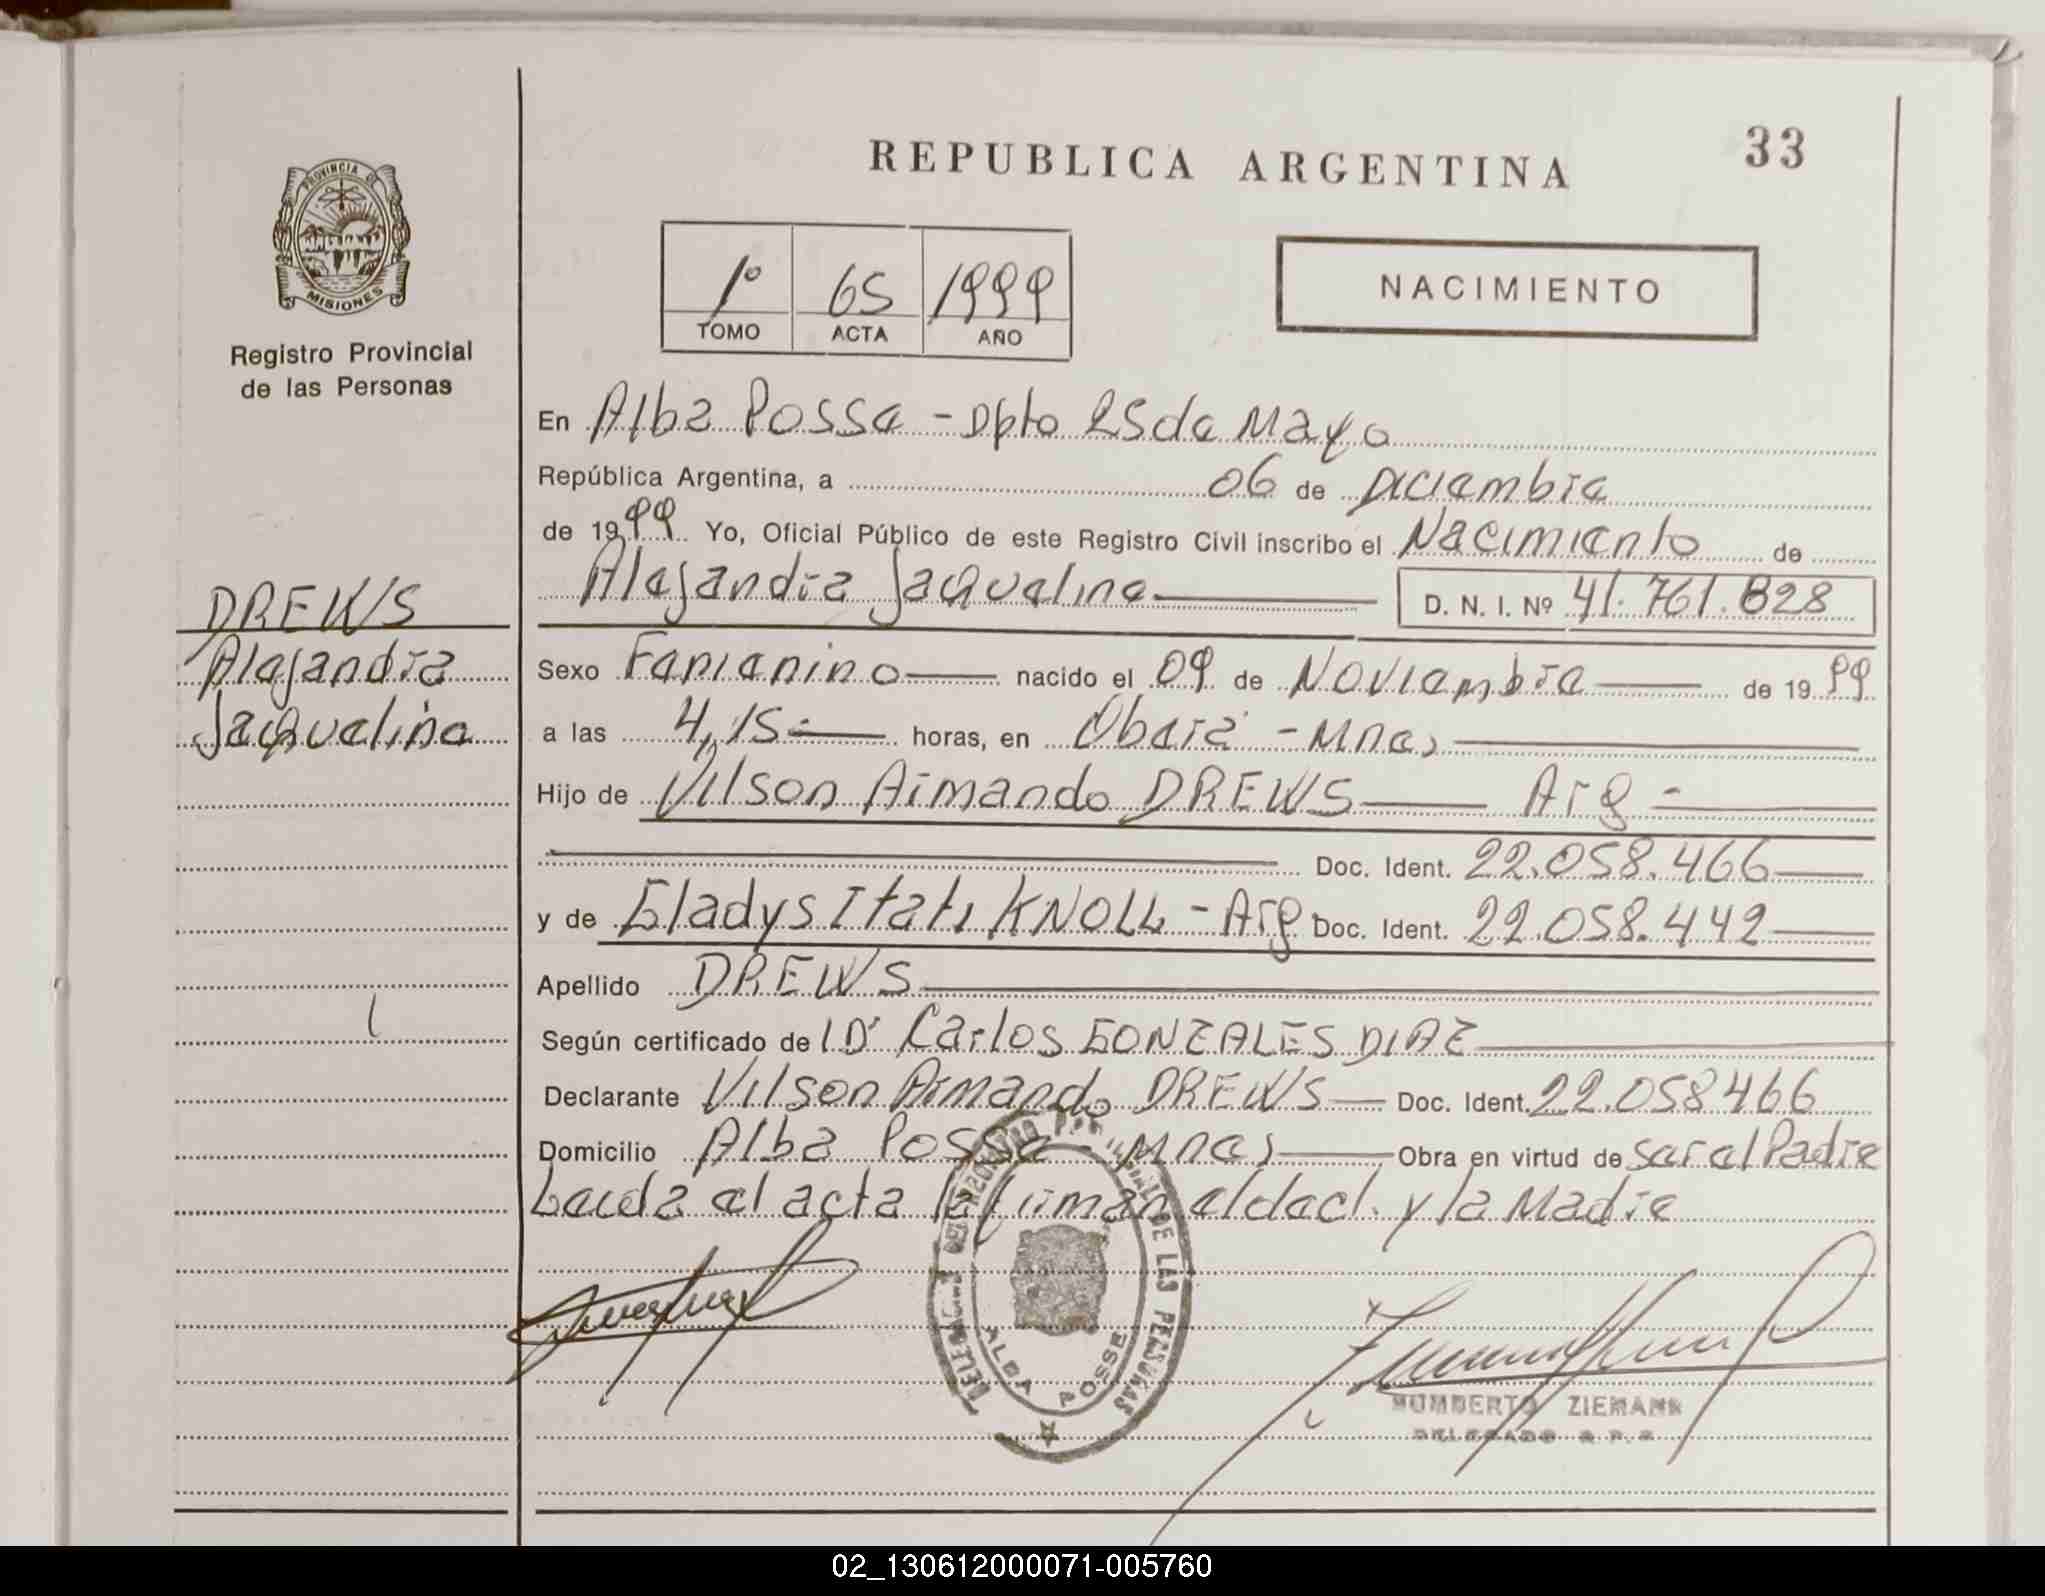 REPUBLICA ARGENTINA
33
PROVINCIA DE
MISIONES
Registro Provincial
de las Personas
1º 65 1999
TOMO ACTA AÑO
NACIMIENTO
En Alba Posse - Dpto 25 de Mayo
República Argentina, a 06 de Diciembre
de 1999 Yo, Oficial Público de este Registro Civil inscribo el Nacimiento de
Alejandra Jaqueline D. N. I. Nº 41.761.828
DREWS
Alejandra
Jaqueline
Sexo Femenino nacido el 09 de Noviembre de 1999
a las 4,15 horas, en Oberá - Mnes,
Hijo de Vilson Armando DREWS Arg -
Doc. Ident. 22.058.466
y de Gladys Itati KNOLL - Arg Doc. Ident. 22.058.442
Apellido DREWS
Según certificado de Dr Carlos GONZALES DIAZ
Declarante Vilson Armando DREWS Doc. Ident. 22.058466
Domicilio Alba Posse - Mnes, Obra en virtud de ser el Padre
Leida el acta la firman el decl. y la Madre
DE LAS PERSONAS
ALBA POSSE
HUMBERTO ZIEMANN
DELEGADO R.P.P.
02_130612000071-005760